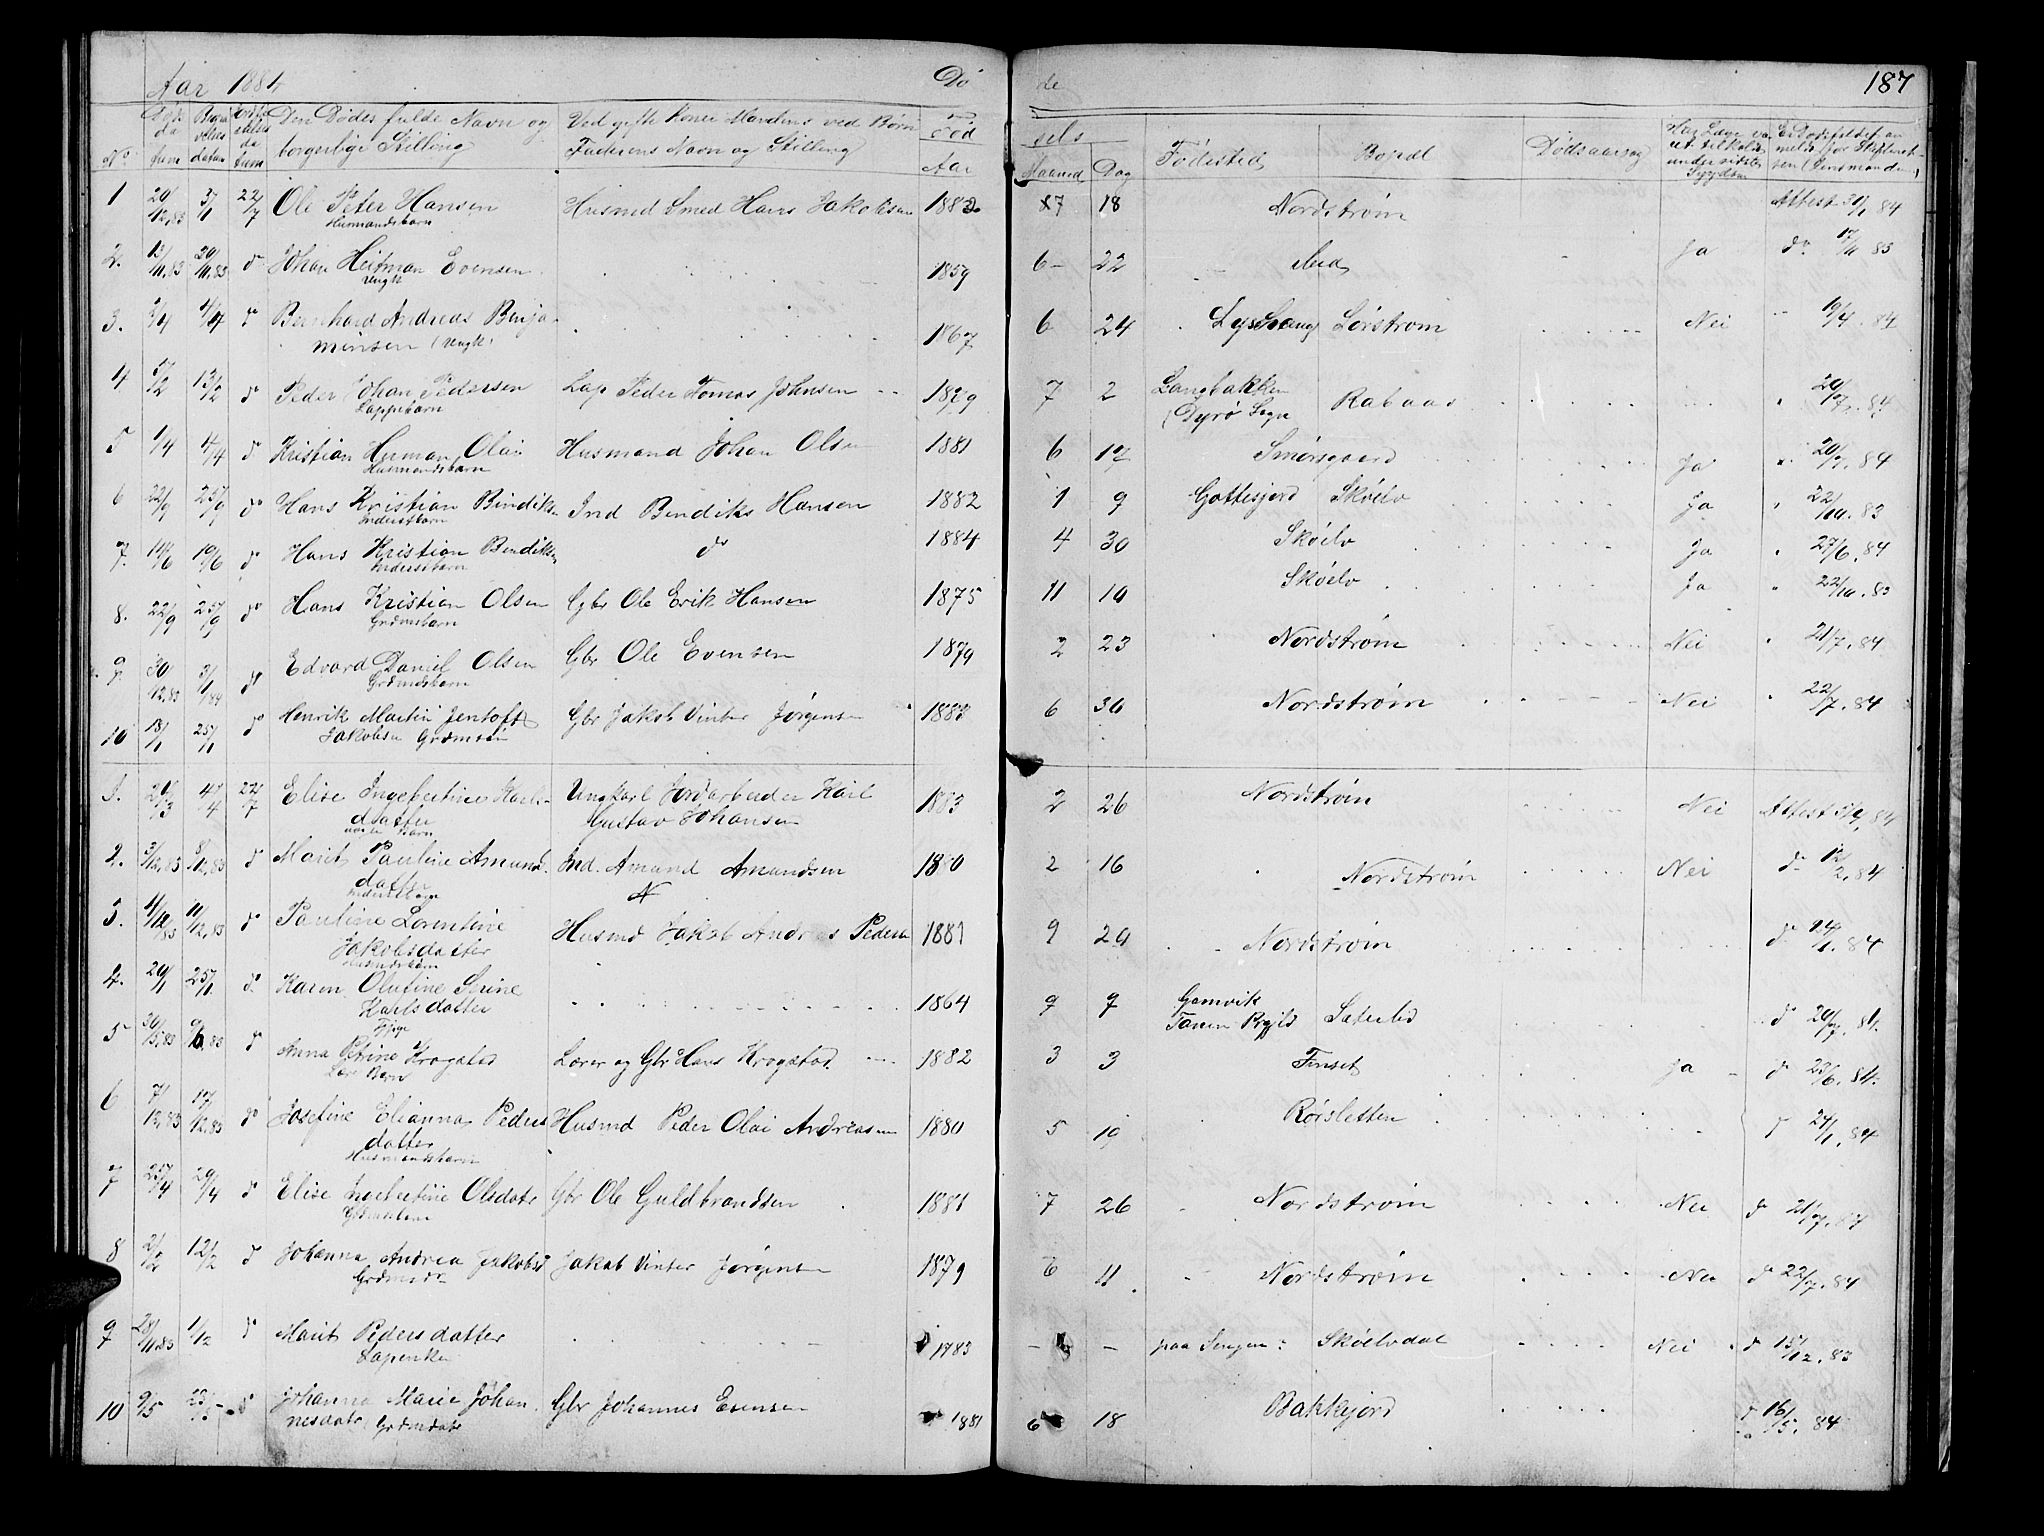 Aar 1884 Dö de 187
No Døds datum Begravelses datum Jordfæstelses datum Den Dødes fulde Navn og borgerlige Stilling Ved gifte Koner Mandens ved Børn Faderens Navn og Stilling Fød Aar sels Maaned Dag Fødested Bopæl Dødsaarsag
1 20/12,83 3/1 22/7 Ole Peter Hansen Husmd Smed Hans Jakobsen 1882 7 18 Nordstrøm Attest 30/1 84
Husmandsbarn
2. 13/11,83 20/11,83 do Johan Heitman Evensen 1859 6 22 Ja do 17/11 83
Ungk
3. 2/4 4/4 do Bernhard Andreas Benja- 1867 6 24 Sørstrøm Nei 19/4 84
minsen (Ungk)
4 5/2 13/2 do Peder Johan Pedersen Lap Peder Tomas Johnsen 1879 7 2 Langbakken Rabaas 20/7, 84
Lappebarn (Dyrø Sogn
5 1/4 4/4 do Kristian Herman Olai Husmand Johan Olsen 1881 6 17 Smørsgaard Ja 20/7, 84
Husmandsbarn
6 22/9 25/9 do Hans Kristian Bendiks Ind Bendiks Hansen 1882 1 9 Gottesjord Skøelv Ja 22/10, 83
Inderstbarn
7. 14/6 19/6 do Hans Kristian Bendiks do 1884 4 30 Skøelv Ja 27/6, 84
Inderstbarn
8. 22/9 25/9 do Hans Kristian Olsen Gbr Ole Erik Hansen 1875 11 10 Skøelv Ja 22/10, 83
Grdmsbarn
9. 30/12,83 3/1/84 do Edvard Daniel Olsen Gbr Ole Evensen 1879 2 23 Nordstrøm Nei 21/7, 84
Grdmdsbarn
10 18/1 25/1 do Henrik Martin Jentoft Gbr Jakob Vinter Jørgensen 1883 6 30 Nordstrøm Nei 22/7, 84
Jakobsen Grdmsøn
1. 20/3 4/4 22/7 Elise Ingebertine Karls- Ungkarl Jordarbeider Karl 1883 2 26 Nordstrøm Nei Attest 84
datter Gustav Johansen
uægte Barn
2. 3/12,83 8/12,83 do Marit Pauline Amund. Ind. Amund Amundsen 1880 2 16 Nordstrøm Nei do 12/2, 84
datter
Inderstbarn
3. 4/12/83 11/12,83 do Pauline Lorentine Husmd Jakob Andreas Pedersen 1881 9 29 Nordstrøm do 24/1, 84
Jakobsdatter
Husmdsbarn
4. 20/1 25/1 do Karen Olufine Serine 1864 9 7 Gamvik Sæterlid do 20/7, 84
Karlsdatter Tanen Prgjld
Pige
5 30/5,83 9/6,83 do Anna Petrine Krogstad Lærer og Gbr Hans Krogstad 1882 3 3 Finset Ja do 23/6, 84
Lær Barn
6 7/12,83 17/12,83 do Josefine Elianna Peders Husmd Peder Olai Andreasen 1880 5 19 Rørsletten do 24/1, 84
datter
Husmandsbarn
7 25/4 29/4 do Elise Ingebertine Olsdatr Gbr Ole Guldbrandsen 1881 7 26 Nordstrøm Nei do 21/7, 84
Grdmsbarn
8 2/2 12/2 do Johanna Andrea Jakobsd Jakob Vinter Jørgensen 1879 6 11 Nordstrøm Nei do 22/7, 84
Grdmsdr
9 28/11,83 1/12 do Marit Pedersdatter 1783 – – paa Senjen: Skøelvdal Nei do 15/12, 83
Lapenke
10 9/5 do Johanna Marie Johan Gbr Johannes Evensen 1881 6 18 Bakkejord do 16/5, 84
nesdatr Grdmdatr